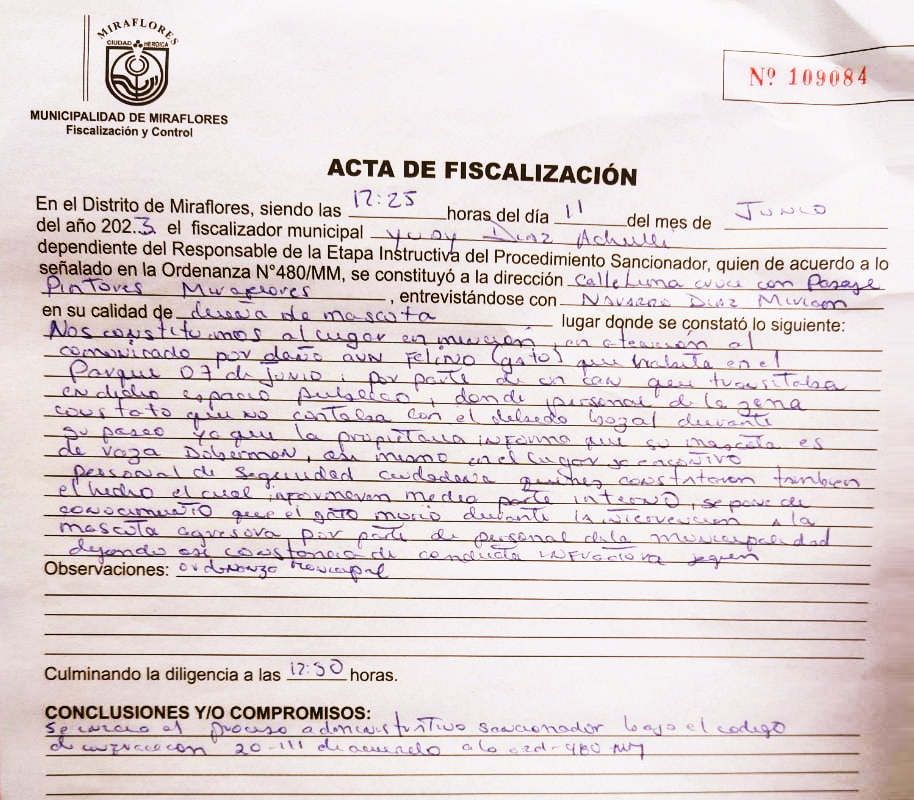 MIRAFLORES
CIUDAD HEROICA
MUNICIPALIDAD DE MIRAFLORES
Fiscalización y Control
Nº 109084
ACTA DE FISCALIZACIÓN
En el Distrito de Miraflores, siendo las 17:25 horas del día 11 del mes de Junio
del año 2023. el fiscalizador municipal Yudy Diaz Achulli
dependiente del Responsable de la Etapa Instructiva del Procedimiento Sancionador, quien de acuerdo a lo
señalado en la Ordenanza N°480/MM, se constituyó a la dirección Calle Lima cruce con Pasaje
Pintores Miraflores, entrevistándose con Navarro Diaz Miriam
en su calidad de dueña de mascota lugar donde se constató lo siguiente:
Nos constituimos al lugar en mención, en atención al
comunicado por daño a un felino (gato) que habita en el
Parque 07 de Junio, por parte de un can que transitaba
en dicho espacio publico, donde personal de la zona
constato que no contaba con el debido bozal durante
su paseo ya que la propietaria informa que su mascota es
de raza Doberman, asi mismo en el lugar se encontro
personal de seguridad ciudadana quienes constataron tambien
el hecho el cual informaran mediante parte interno, se pone de
conocimiento que el gato murio durante la intervencion a la
mascota agresora por parte de personal de la municipalidad
dejando asi constancia de conducta infractora segun
Observaciones: ordenanza municipal
Culminando la diligencia a las 17:30 horas.
CONCLUSIONES Y/O COMPROMISOS:
Se inicio el proceso administrativo sancionador bajo el codigo
de infraccion 20-111 de acuerdo a la ord-480-MM